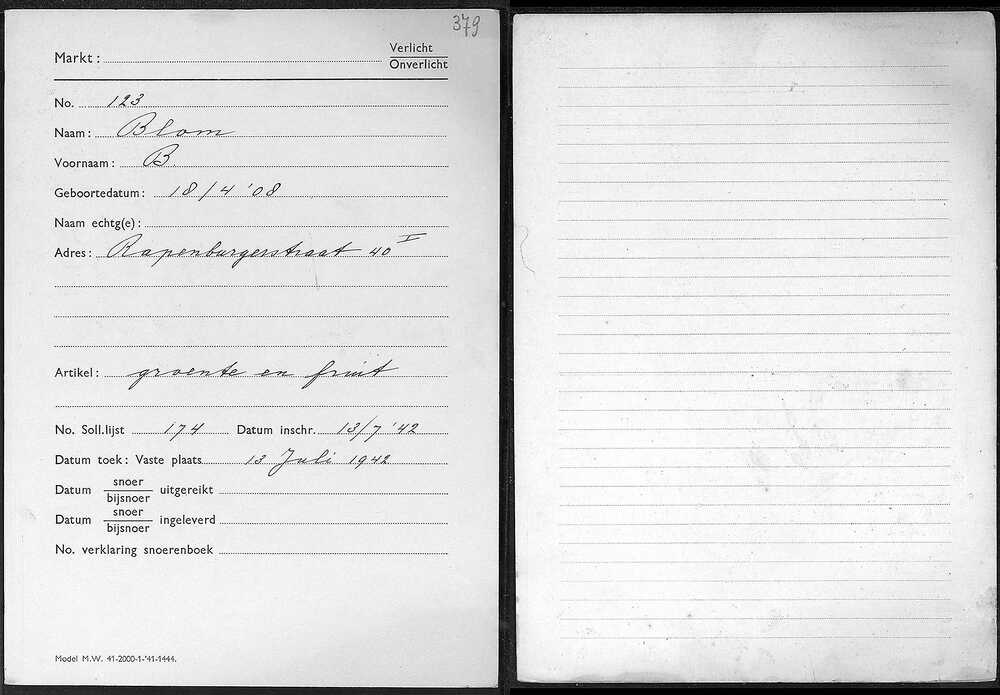 379
Markt :
Verlicht
Onverlicht
No. 123
Naam : Blom
Voornaam : B.
Geboortedatum : 18/4 '08
Naam echtg(e) :
Adres : Rapenburgerstraat 40 I
Artikel : groente en fruit
No. Soll.lijst 174 Datum inschr. 13/7 '42
Datum toek : Vaste plaats 13 Juli 1942
Datum snoer
bijsnoer uitgereikt
Datum snoer
bijsnoer ingeleverd
No. verklaring snoerenboek
Model M.W. 41-2000-1-'41-1444.